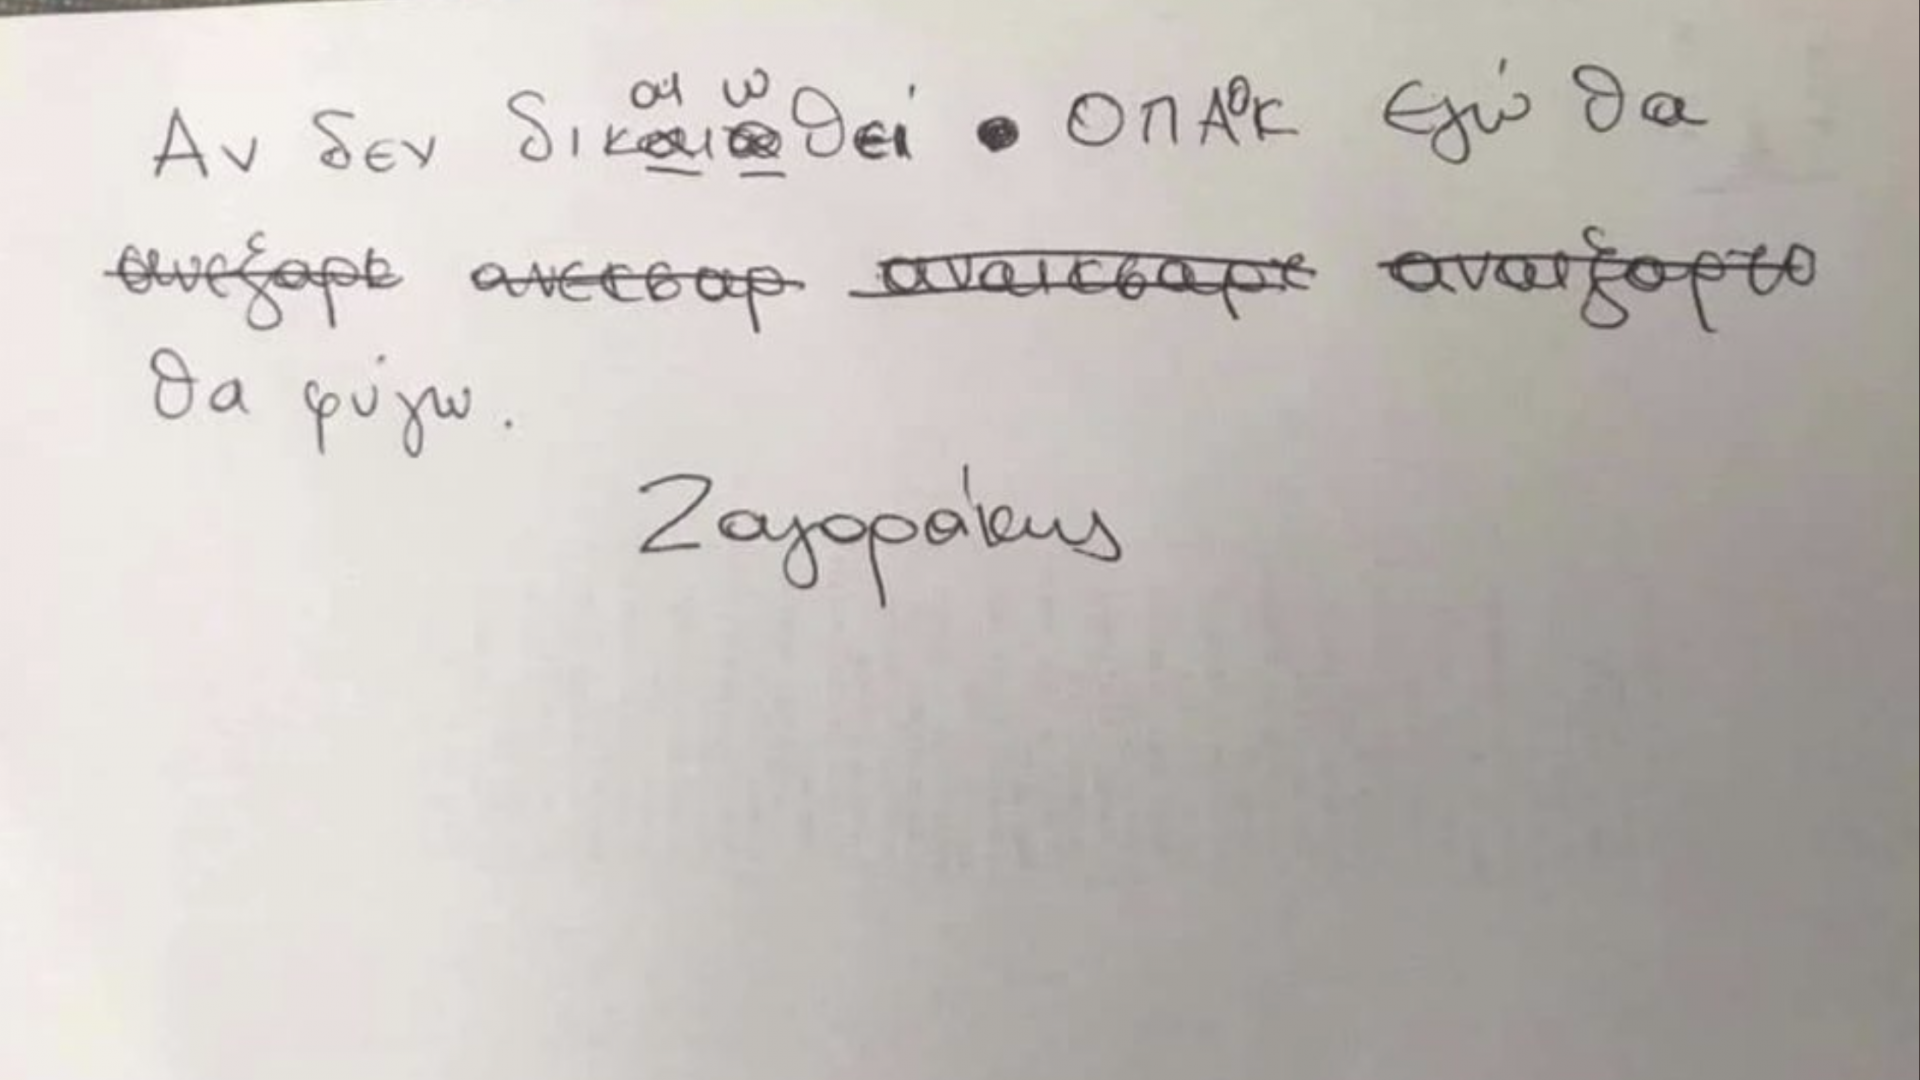 Αν δεν δικαιωθεί • Ο ΠΑΟΚ εγώ θα
ανεξαρκ ανεσσαρ αναικσαρε αναιξαρτο
θα φύγω.
Ζαγοράκης